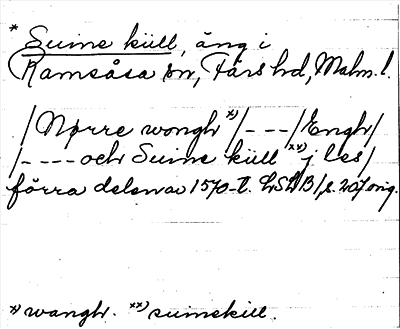 * Suine küll, äng i
Ramsåsa sn, Färs hd, Malm. l.
/Nørre wongh *)/---/Engh/
/---- och Suine küll **) j les/
förra delen av 1570-t. LSLB/s. 207 orig.
*) wangh. **) suinekill.